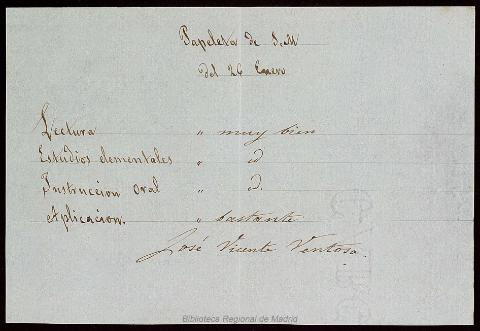 Papeleta de S.M
del 26 Enero
Lectura " muy bien
Estudios elementales " id
Instruccion oral " id.
Aplicacion. " bastante
José Vicente Ventosa.
Biblioteca Regional de Madrid